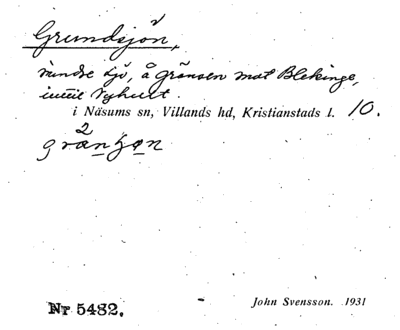 Grundsjön,
mindre sjö, å gränsen mot Blekinge,
intill Nyhult.
i Näsums sn, Villands hd, Kristianstads l. 10.
Nr 5482.
John Svensson. 1931